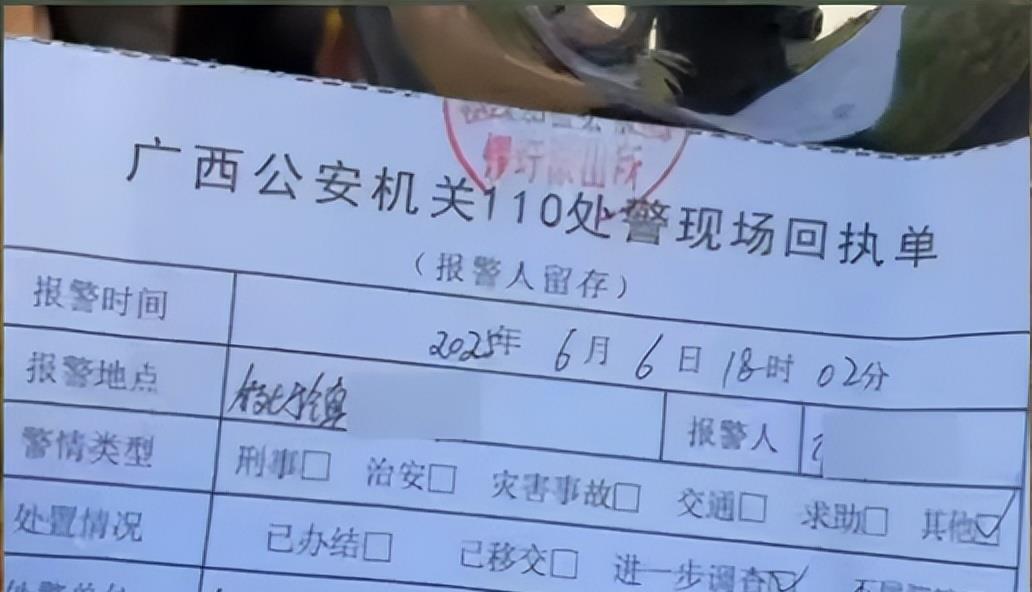 派出所
广西公安机关110处警现场回执单
(报警人留存)
报警时间 2025年 6月 6日 18时 02分
报警地点 镇 报警人
警情类型 刑事□ 治安□ 灾害事故□ 交通□ 求助□ 其他☑
处置情况 已办结□ 已移交□ 进一步调查☑